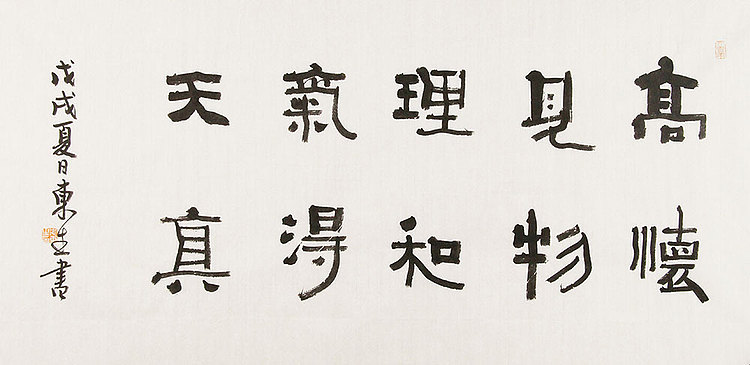 高懷
見物
理和
氣得
天真
戊戌夏日東生書